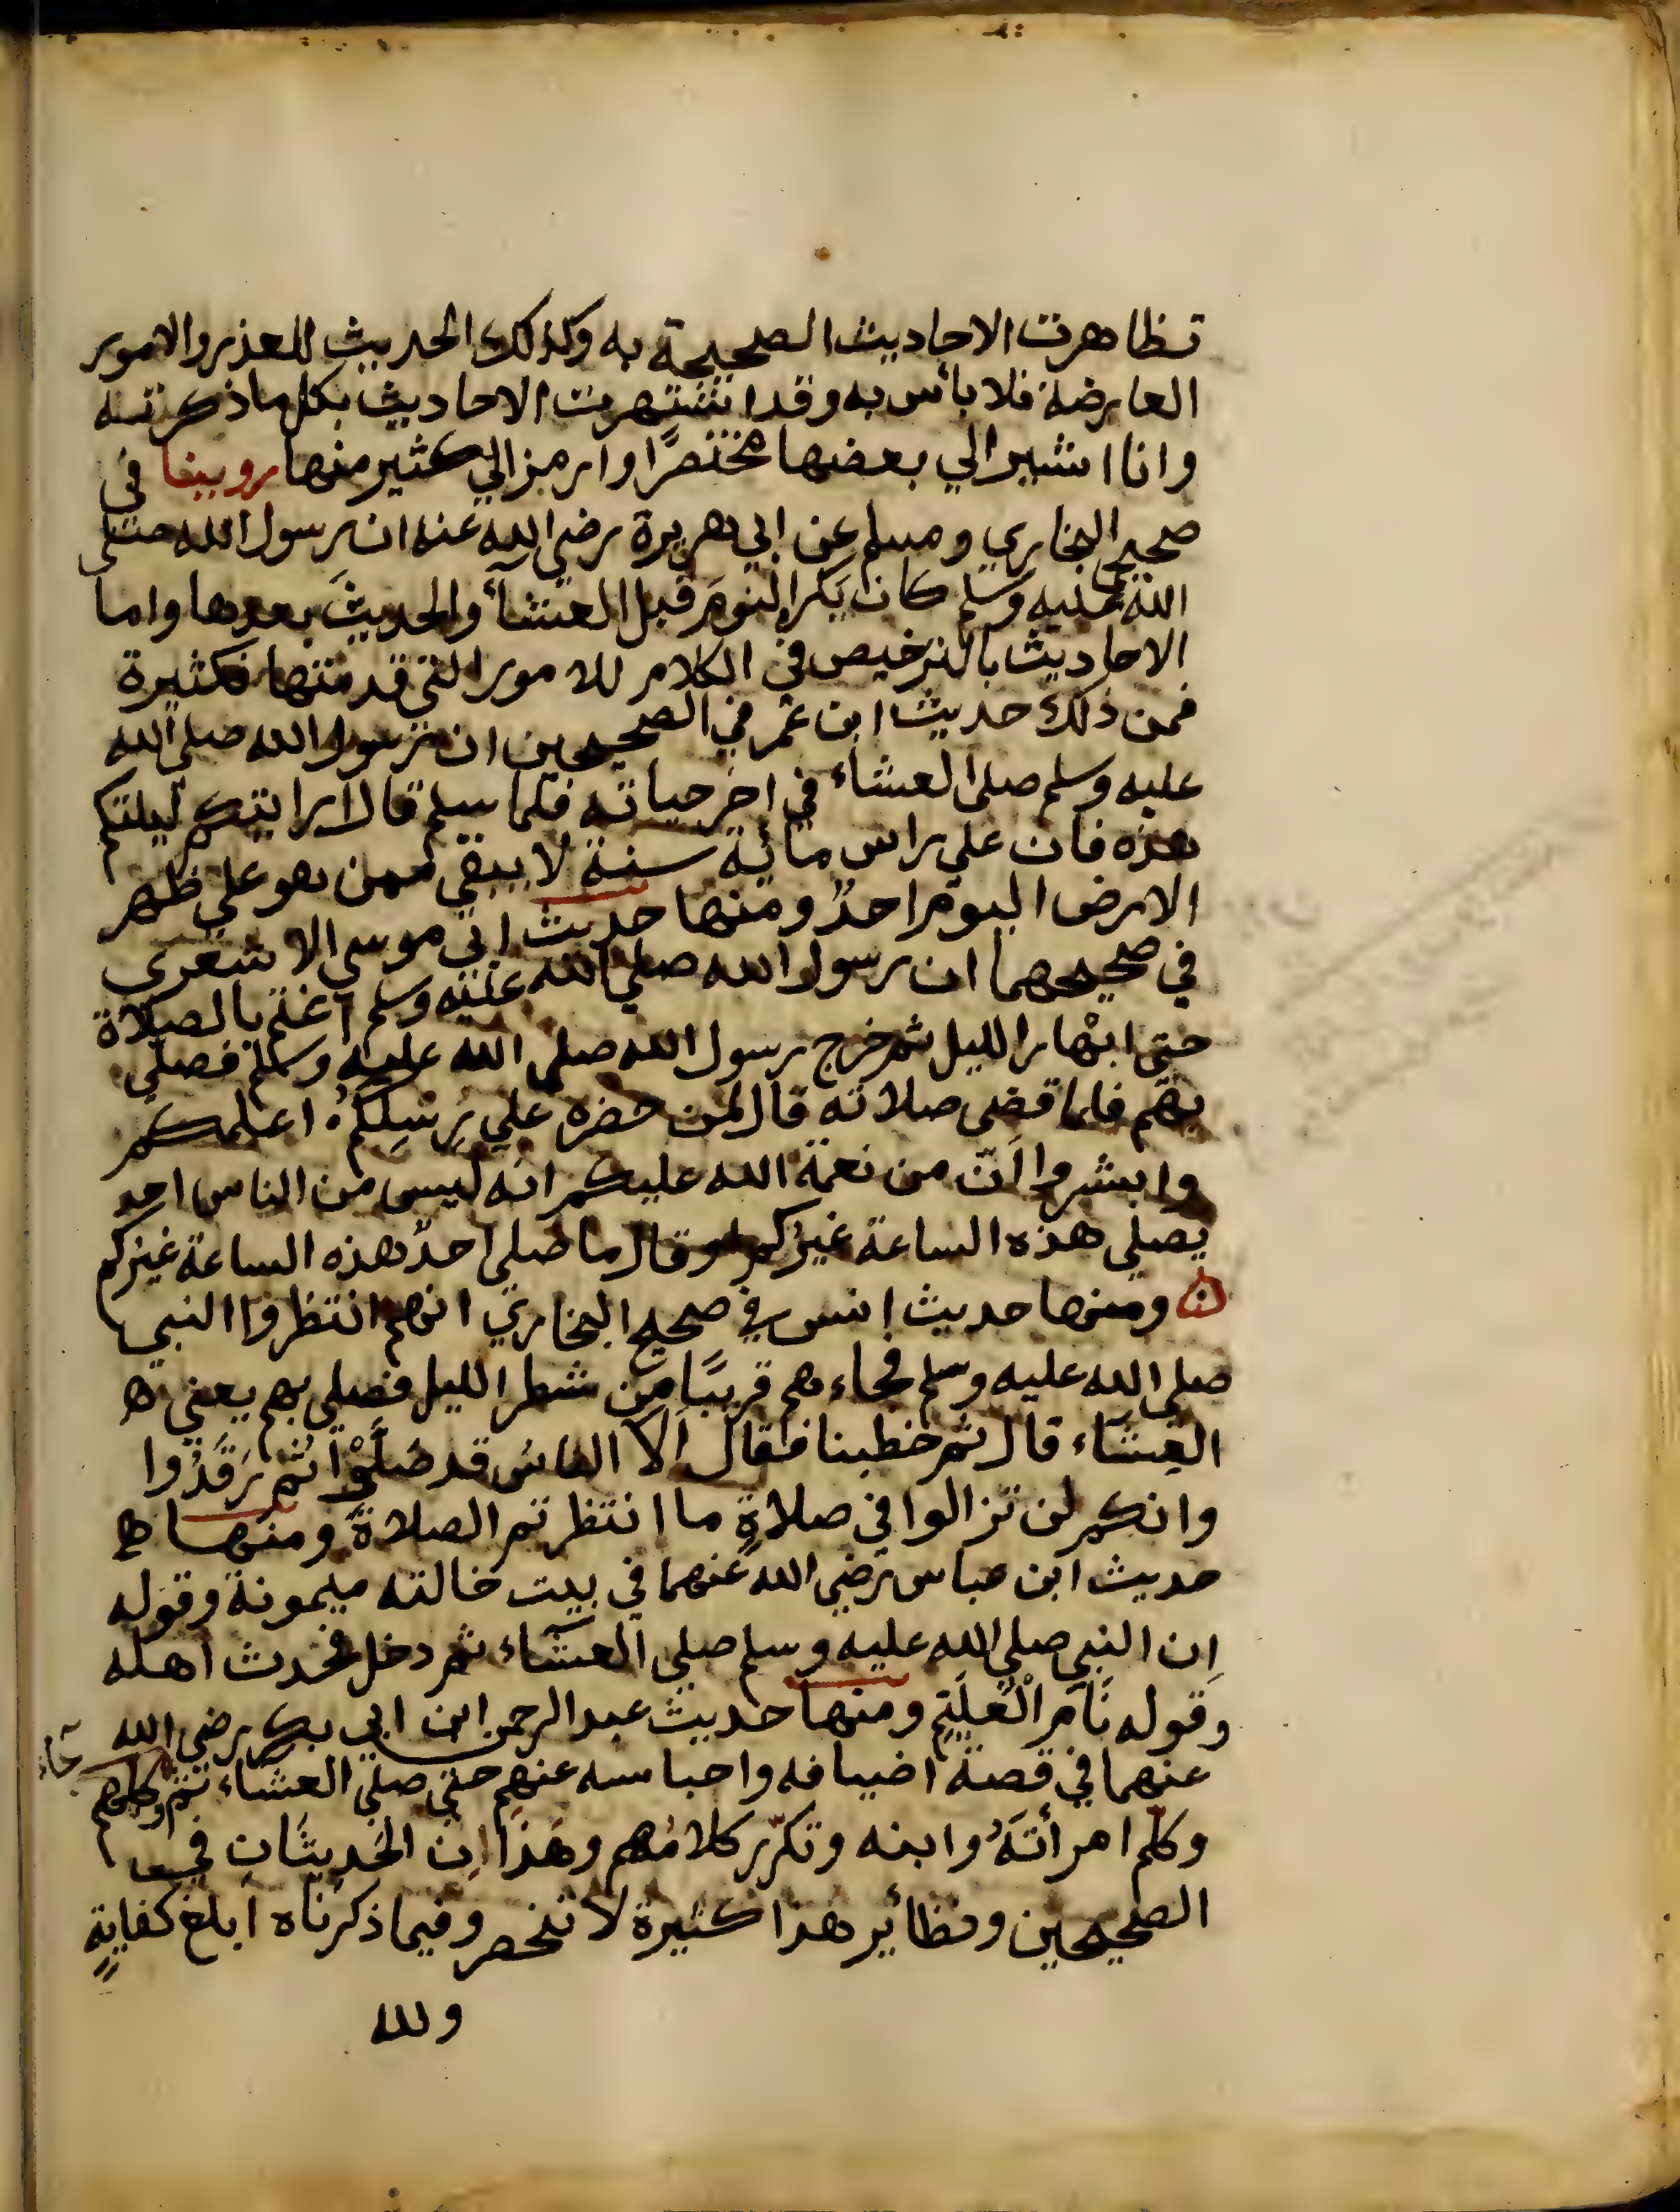 تظاهرت الاحاديث الصحيحة به وكذلك الحديث للعذر والامور
العارضة فلا بأس به وقد اشتهرت الاحاديث بكل ما ذكرته
وانا اشير الي بعضها مختصرًا وارمز الي كثير منها روينا في
صحيح البخاري ومسلم عن ابي هريرة رضي الله عنه ان رسول الله صلى
الله عليه وسلم كان يكره النومَ قبل العشآء والحديثَ بعدها واما
الاحاديث بالترخيص في الكلام للامور التي قدمتها فكثيرة
فمن ذلك حديث ابن عمر في الصحيحين ان رسول الله صلى الله
عليه وسلم صلى العشاء في اخر حياته فلما سلم قال ارايتكم ليلتكم
هذه فان علي راس مائة سنة لا يبقي ممن هو علي ظهر
الارض اليوم احدٌ ومنها حديث ابي موسى الاشعري
في صحيحهما ان رسول الله صلي الله عليه وسلم اعتم بالصلاة
حتى ابْهار الليل ثم خرج رسول الله صلى الله عليه وسلم فصلى
بهم فلما قضى صلاته قال لمن حضره علي رِسْلِكُمُ اعلمكم
وابشروا اَنّ من نعمة الله عليكم انه ليس من الناس احد
يصلي هذه الساعة غيركم او قال ما صلى احدٌ هذه الساعة غيركم
ومنها حديث انس في صحيح البخاري انهم انتظروا النبي
صلي الله عليه وسلم فجاءهم قريبًا من شطر الليل فصلى بهم يعني
العِشَاء قال ثم خطبنا فقال اَلا الناسَ قد صَلَّوْا ثُم رَقَدُوا
وانكم لن تزالوا في صلاةٍ ما انتظرتم الصلاةَ ومنها
حديث ابن عباس رضي الله عنهما في بيت خالته ميمونة وقوله
اِن النبي صلي الله عليه وسلم صلي العشآء ثم دخل فحدث اهله
وقوله نَامَ الْغُلَيِّم ومنها حديث عبد الرحمن ابن ابي بكر رضي الله
عنهما في قصة اضيافه واحباسه عنهم حتي صلي العشاء ثم وكلمهم
وكلم امرأتَهُ وابنه وتكرّر كلامُهم وهَذَانِ الحَدِيثَانِ في
الصحيحين ونظائر هذا كثيرة لا تنحصر وفيما ذكرناه ابلغ كفايةٍ
ولله